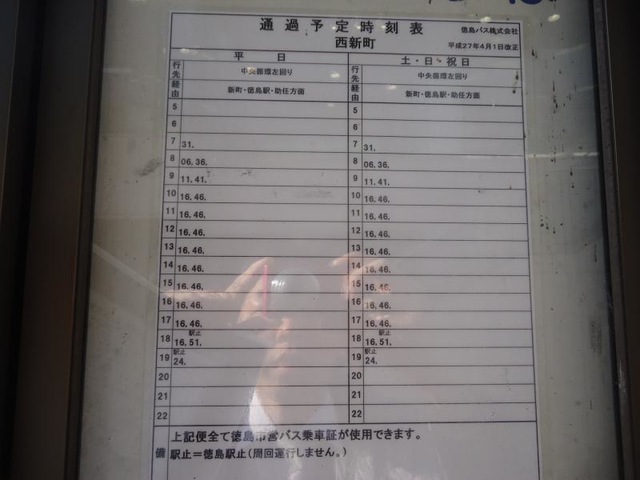 通過予定時刻表 徳島バス株式会社
西新町 平成27年4月1日改正
平日 土・日・祝日
行先 中央循環左回り 行先 中央循環左回り
経由 新町・徳島駅・助任方面 経由 新町・徳島駅・助任方面
5 5
6 6
7 31. 7 31.
8 06. 36. 8 06. 36.
9 11. 41. 9 11. 41.
10 16. 46. 10 16. 46.
11 16. 46. 11 16. 46.
12 16. 46. 12 16. 46.
13 16. 46. 13 16. 46.
14 16. 46. 14 16. 46.
15 16. 46. 15 16. 46.
16 16. 46. 16 16. 46.
17 16. 46. 17 16. 46.
駅止 駅止
18 16. 51. 18 16. 51.
駅止 駅止
19 24. 19 24.
20 20
21 21
22 22
上記便全て徳島市営バス乗車証が使用できます。
備 駅止=徳島駅止(周回運行しません。)